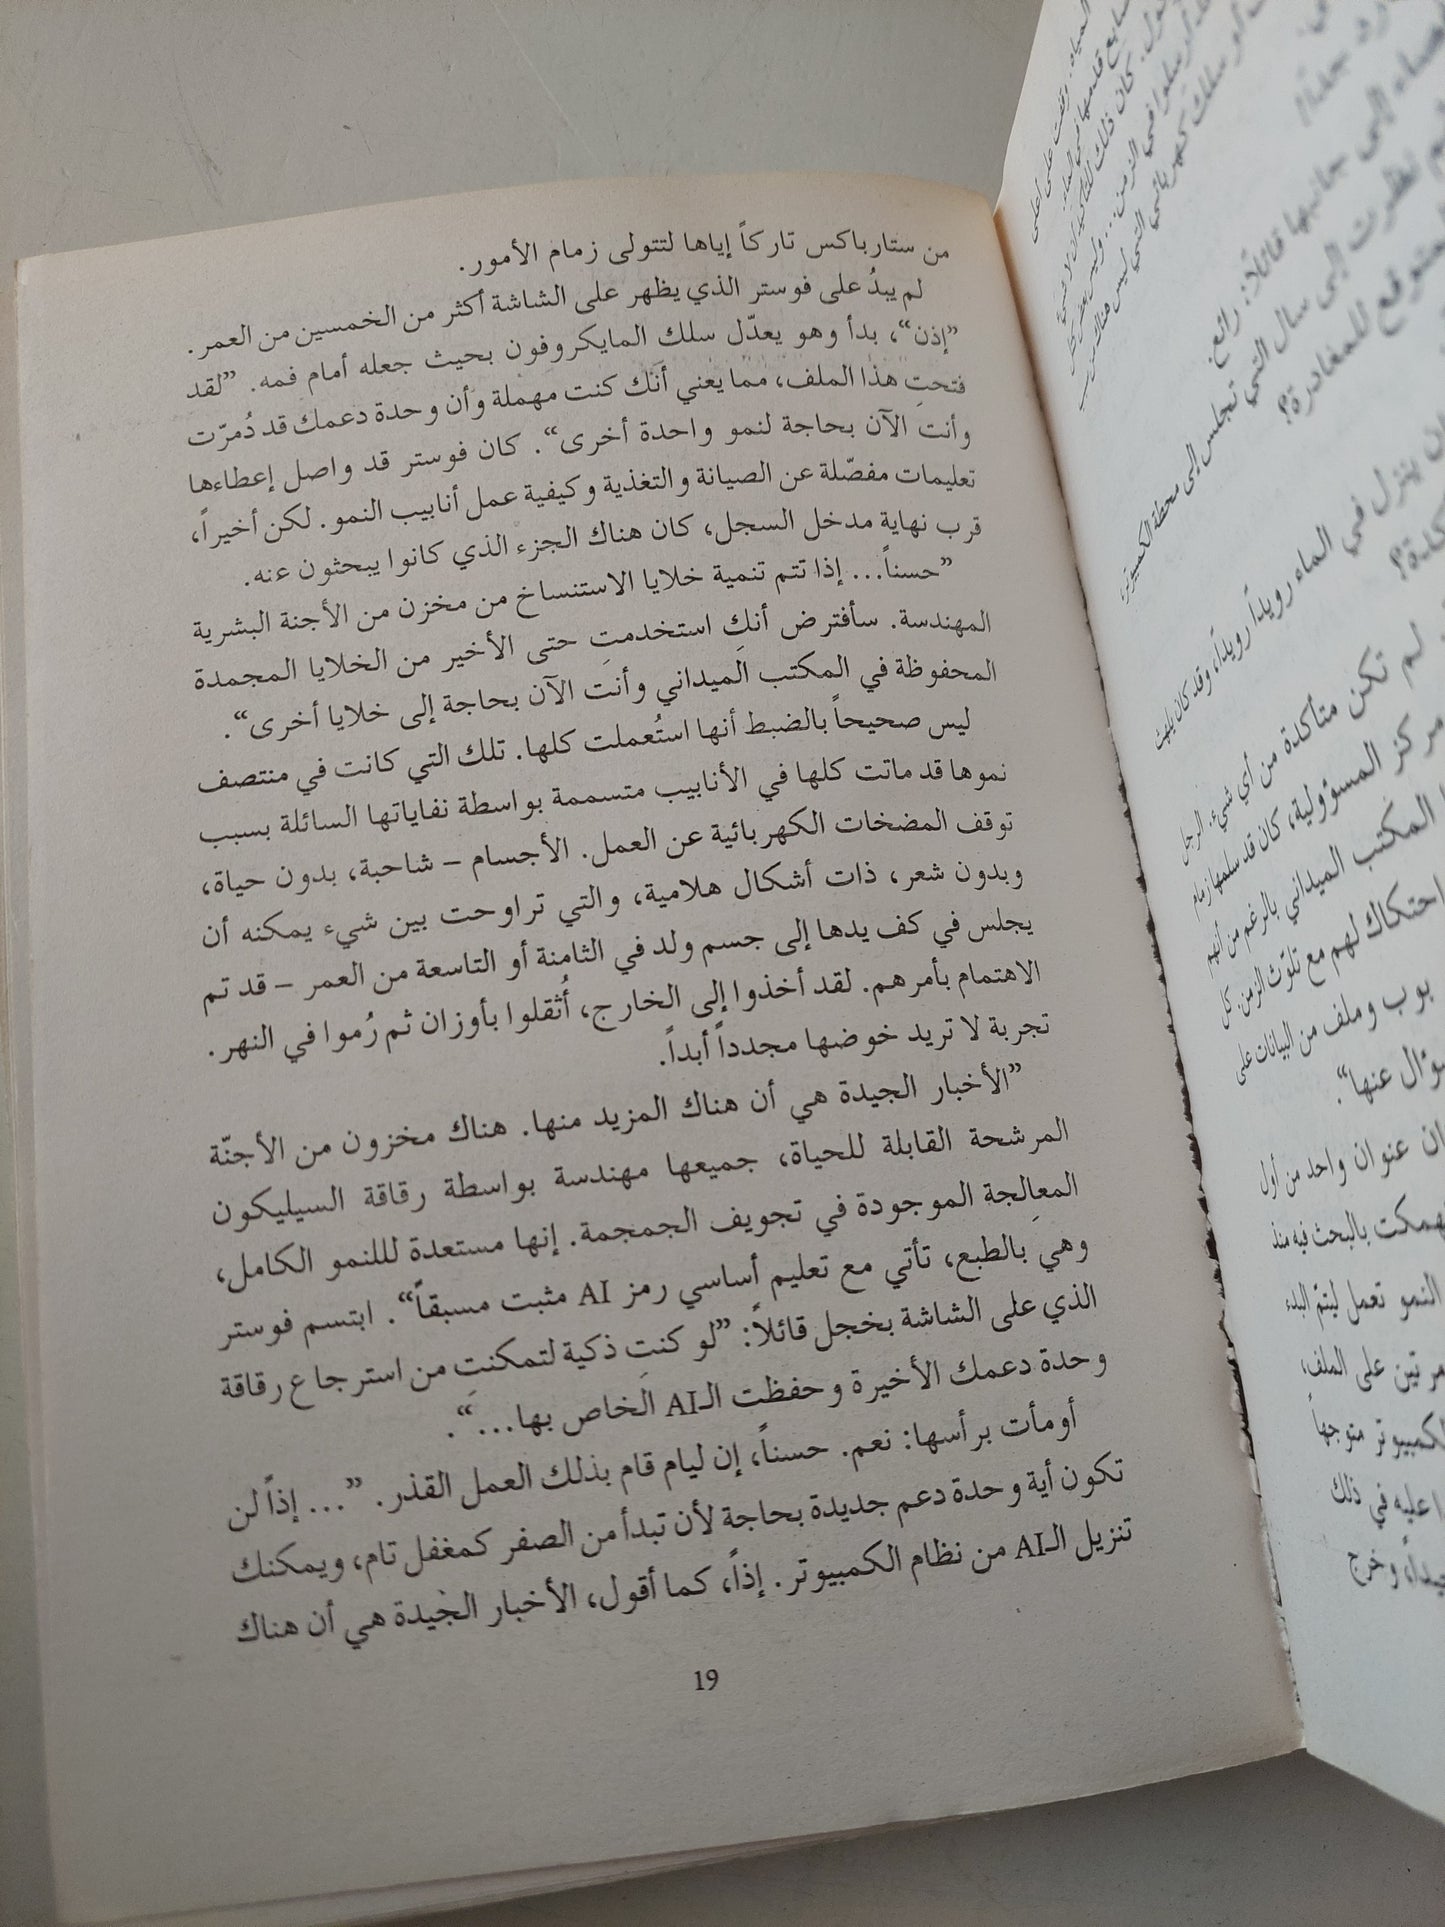 من ستارباكس تاركاً إياها لتتولى زمام الأمور.
لم يبدُ على فوستر الذي يظهر على الشاشة أكثر من الخمسين من العمر.
”إذن“، بدأ وهو يعدّل سلك المايكروفون بحيث جعله أمام فمه. ”لقد
فتحتِ هذا الملف، مما يعني أنك كنت مهملة وأن وحدة دعمك قد دُمرّت
وأنت الآن بحاجة لنمو واحدة أخرى“. كان فوستر قد واصل إعطاءها
تعليمات مفصّلة عن الصيانة والتغذية وكيفية عمل أنابيب النمو. لكن أخيراً،
قرب نهاية مدخل السجل، كان هناك الجزء الذي كانوا يبحثون عنه.
”حسناً... إذا تتم تنمية خلايا الاستنساخ من مخزن من الأجنة البشرية
المهندسة. سأفترض أنكِ استخدمتِ حتى الأخير من الخلايا المجمدة
المحفوظة في المكتب الميداني وأنت الآن بحاجة إلى خلايا أخرى“.
ليس صحيحاً بالضبط أنها استُعملت كلها. تلك التي كانت في منتصف
نموها قد ماتت كلها في الأنابيب متسممة بواسطة نفاياتها السائلة بسبب
توقف المضخات الكهربائية عن العمل. الأجسام – شاحبة، بدون حياة،
وبدون شعر، ذات أشكال هلامية، والتي تراوحت بين شيء يمكنه أن
يجلس في كف يدها إلى جسم ولد في الثامنة أو التاسعة من العمر – قد تم
الاهتمام بأمرهم. لقد أخذوا إلى الخارج، أُثقلوا بأوزان ثم رُموا في النهر.
تجربة لا تريد خوضها مجدداً أبداً.
”الأخبار الجيدة هي أن هناك المزيد منها. هناك مخزون من الأجنّة
المرشحة القابلة للحياة، جميعها مهندسة بواسطة رقاقة السيليكون
المعالِجة الموجودة في تجويف الجمجمة. إنها مستعدة لللنمو الكامل،
وهي بالطبع، تأتي مع تعليم أساسي رمز AI مثبت مسبقاً“. ابتسم فوستر
الذي على الشاشة بخجل قائلاً: ”لو كنتِ ذكية لتمكنتِ من استرجاع رقاقة
وحدة دعمك الأخيرة وحفظت الـAI الخاص بها...“.
أومأت برأسها: نعم. حسناً، إن ليام قام بذلك العمل القذر. ”... إذاً لن
تكون أية وحدة دعم جديدة بحاجة لأن تبدأ من الصفر كمغفل تام، ويمكنك
تنزيل الـAI من نظام الكمبيوتر. إذاً، كما أقول، الأخبار الجيدة هي أن هناك
19
جانبها قائلاً: رائع.
نظرت إلى سال التي تجلس إلى محطة الكمبيوتر،
للمغادرة؟
ينزل في الماء رويداً رويداً، وقد كان يلهث
لم تكن متأكدة من أي شيء. الرجل
مركز المسؤولية، كان قد سلمها زمام
المكتب الميداني بالرغم من أنهم
احتكاك لهم مع تلوّث الزمن. كل
بوب وملف من البيانات على
عنها“.
عنوان واحد من أول
بالبحث فيه منذ
النمو تعمل ليتمّ البدء
مرتين على الملف،
متوجهاً
في ذلك
وخرج